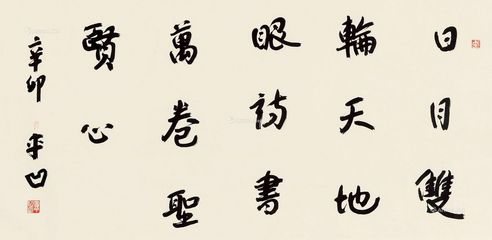 日月雙
輪天地
眼詩書
萬卷聖
賢心
辛卯 平凹